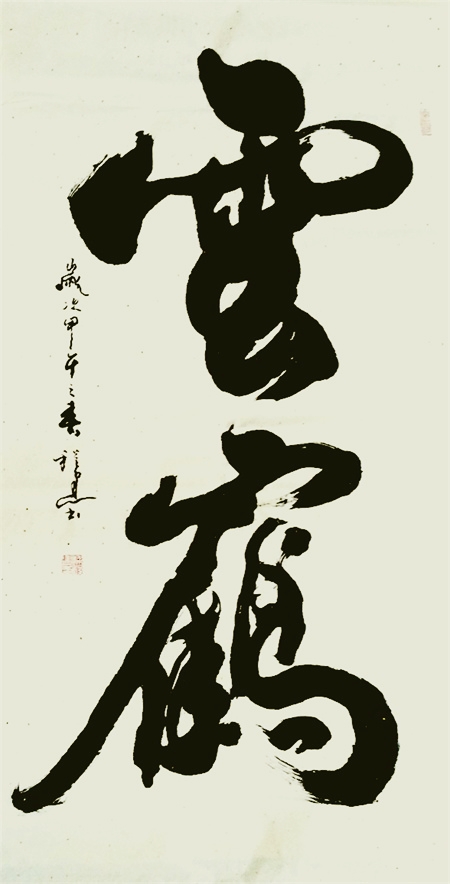 雲鶴
歲次甲午之春